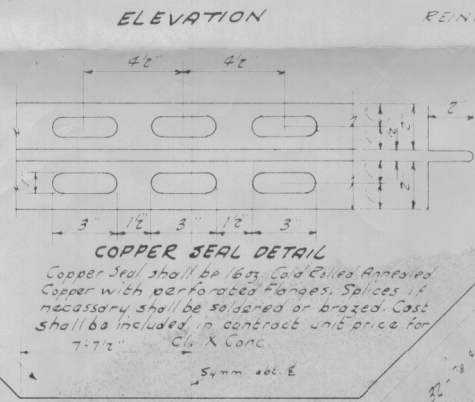 ELEVATION
REIN
4½" 4½"
2"
3" 1½" 3" 1½" 3"
COPPER SEAL DETAIL
Copper Seal shall be 16 oz. Cold Rolled Annealed
Copper with perforated Flanges. Splices if
necessary shall be soldered or brazed. Cost
shall be included in contract unit price for
Cl. X Conc.
7'-7½"
Symm. abt. ℄